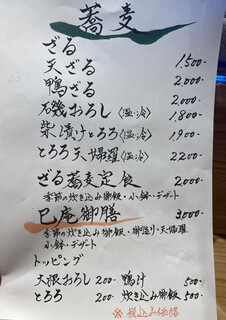 蕎麦
ざる
天ざる 1500-
鴨ざる 2,000-
磯おろし〈温・冷〉 2,000-
柴漬けとろろ〈温・冷〉 1,800-
とろろ天婦羅〈温・冷〉 1,900-
2200-
ざる蕎麦定食 2,000-
季節の炊き込み御飯・小鉢・デザート
巳庵御膳 3,000-
季節の炊き込み御飯、御造り・天婦羅
小鉢・デザート
トッピング
大根おろし 200- 鴨汁 500-
とろろ 200- 炊き込み御飯 500-
※税込み価格